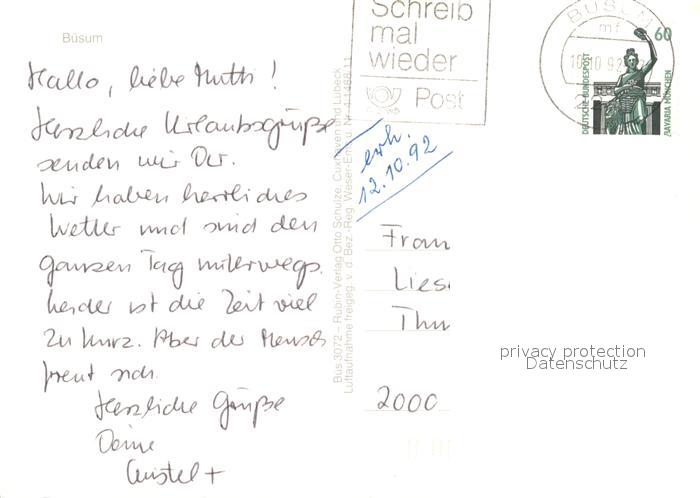 Büsum
Hallo, liebe Mutti!
Herzliche Urlaubsgrüße
senden wir Dir.
Wir haben herrliches
Wetter und sind den
ganzen Tag unterwegs.
Leider ist die Zeit viel
zu kurz. Aber der Mensch
freut sich.
Herzliche Grüße
Deine
Christel +
Bus 3072 – Rubin-Verlag Otto Schulze, Cuxhaven und Lübeck
Luftaufnahme freigeg. v. d. Bez.-Reg. Weser-Ems u. Nr.
Schreib
mal
wieder
Post
BÜSUM
mf
10.10.92
60
DEUTSCHE BUNDESPOST
BAVARIA MÜNCHEN
erh.
12.10.92
Fran
Lies
Thu
2000
privacy protection
Datenschutz